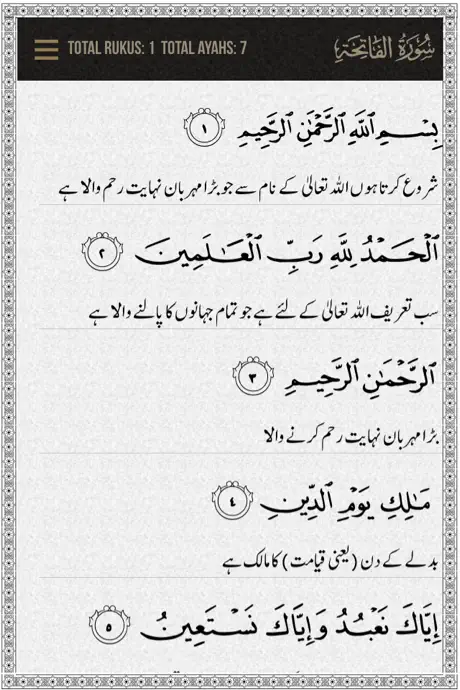 TOTAL RUKUS: 1 TOTAL AYAHS: 7 سُوْرَةُ الْفَاتِحَةِ
بِسْمِ ٱللَّهِ ٱلرَّحْمَٰنِ ٱلرَّحِيمِ ١
شروع کرتا ہوں اللہ تعالیٰ کے نام سے جو بڑا مہربان نہایت رحم والا ہے
ٱلْحَمْدُ لِلَّهِ رَبِّ ٱلْعَـٰلَمِينَ ٢
سب تعریف اللہ تعالیٰ کے لئے ہے جو تمام جہانوں کا پالنے والا ہے
ٱلرَّحْمَٰنِ ٱلرَّحِيمِ ٣
بڑا مہربان نہایت رحم کرنے والا
مَـٰلِكِ يَوْمِ ٱلدِّينِ ٤
بدلے کے دن (یعنی قیامت) کا مالک ہے
إِيَّاكَ نَعْبُدُ وَإِيَّاكَ نَسْتَعِينُ ٥